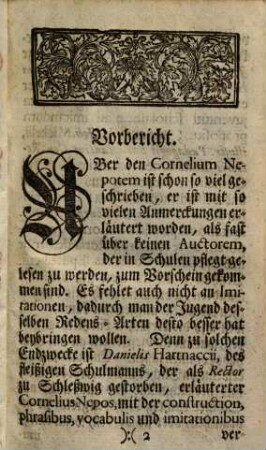 Vorbericht.
UBer den Cornelium Ne-
potem ist schon so viel ge-
schrieben, er ist mit so
vielen Anmerckungen er-
läutert worden, als fast
über keinen Auctorem,
der in Schulen pflegt ge-
lesen zu werden, zum Vorschein gekom-
men sind. Es fehlet auch nicht an Imi-
tationen, dadurch man der Jugend des-
selben Redens-Arten desto besser hat
beybringen wollen. Denn zu solchen
Endzwecke ist Danielis Hartnaccii, des
fleißigen Schulmanns, der als Rector
zu Schleßwig gestorben, erläuterter
Cornelius Nepos, mit der construction,
phrasibus, vocabulis und imitationibus
):( 2 ver-